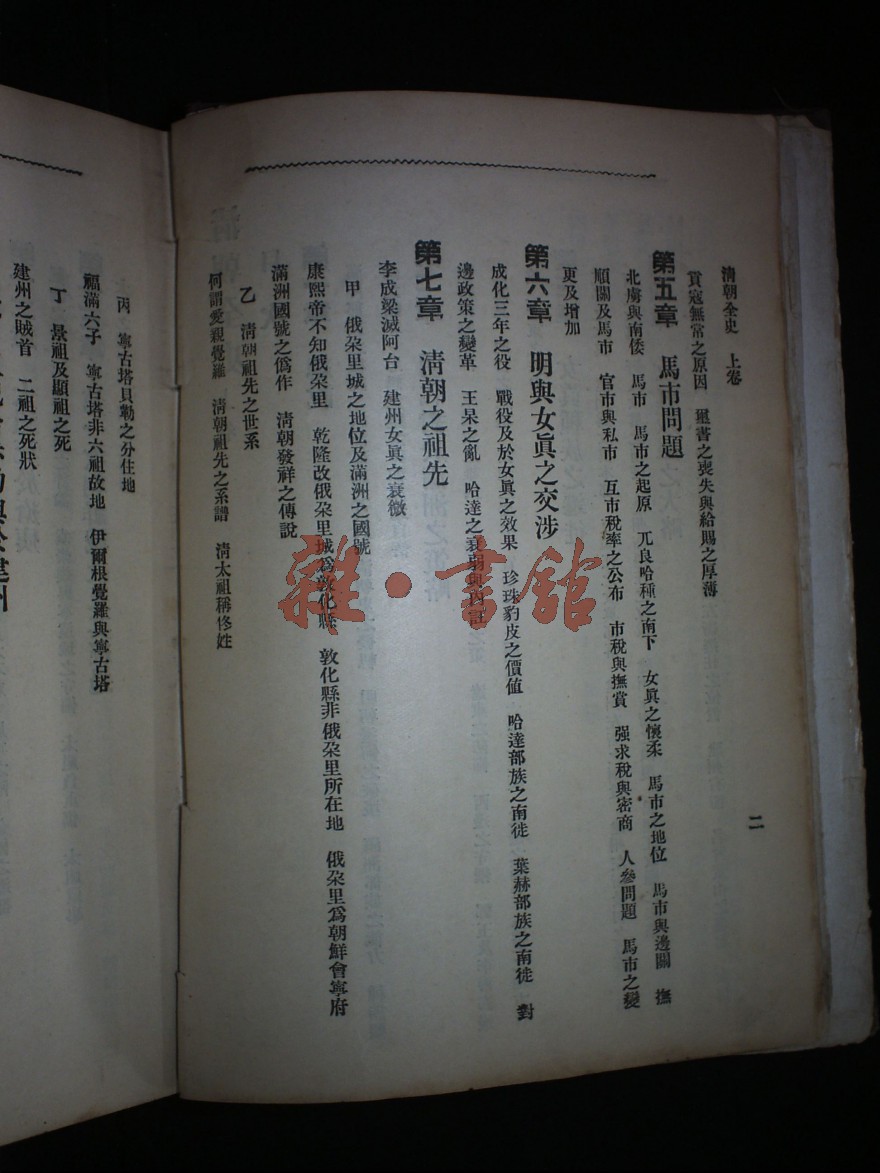 清朝全史　上卷
二
貢寇無常之原因　璽書之喪失與給賜之厚薄
第五章　馬市問題
北虜與南倭　馬市　馬市之起原　兀良哈種之南下　女眞之懷柔　馬市之地位　馬市與邊關　撫
順關及馬市　官市與私市　互市稅率之公布　市稅與撫賞　强求稅與密商　人參問題　馬市之變
更及增加
第六章　明與女眞之交涉
成化三年之役　戰役及於女眞之效果　珍珠豹皮之價値　哈達部族之南徙　葉赫部族之南徙　對
邊政策之變革　王杲之亂　哈達之衰弱與內訌
第七章　淸朝之祖先
李成梁滅阿台　建州女眞之衰微
甲　俄朶里城之地位及滿洲之國號
康熙帝不知俄朶里　乾隆改俄朶里城爲敦化縣　敦化縣非俄朶里所在地　俄朶里爲朝鮮會寧府
滿洲國號之僞作　淸朝發祥之傳說
乙　淸朝祖先之世系
何謂愛親覺羅　淸朝祖先之系譜　淸太祖稱佟姓
丙　寧古塔貝勒之分住地
福滿六子　寧古塔非六祖故地　伊爾根覺羅與寧古塔
丁　景祖及顯祖之死
建州之賊首　二祖之死狀
雜·書館